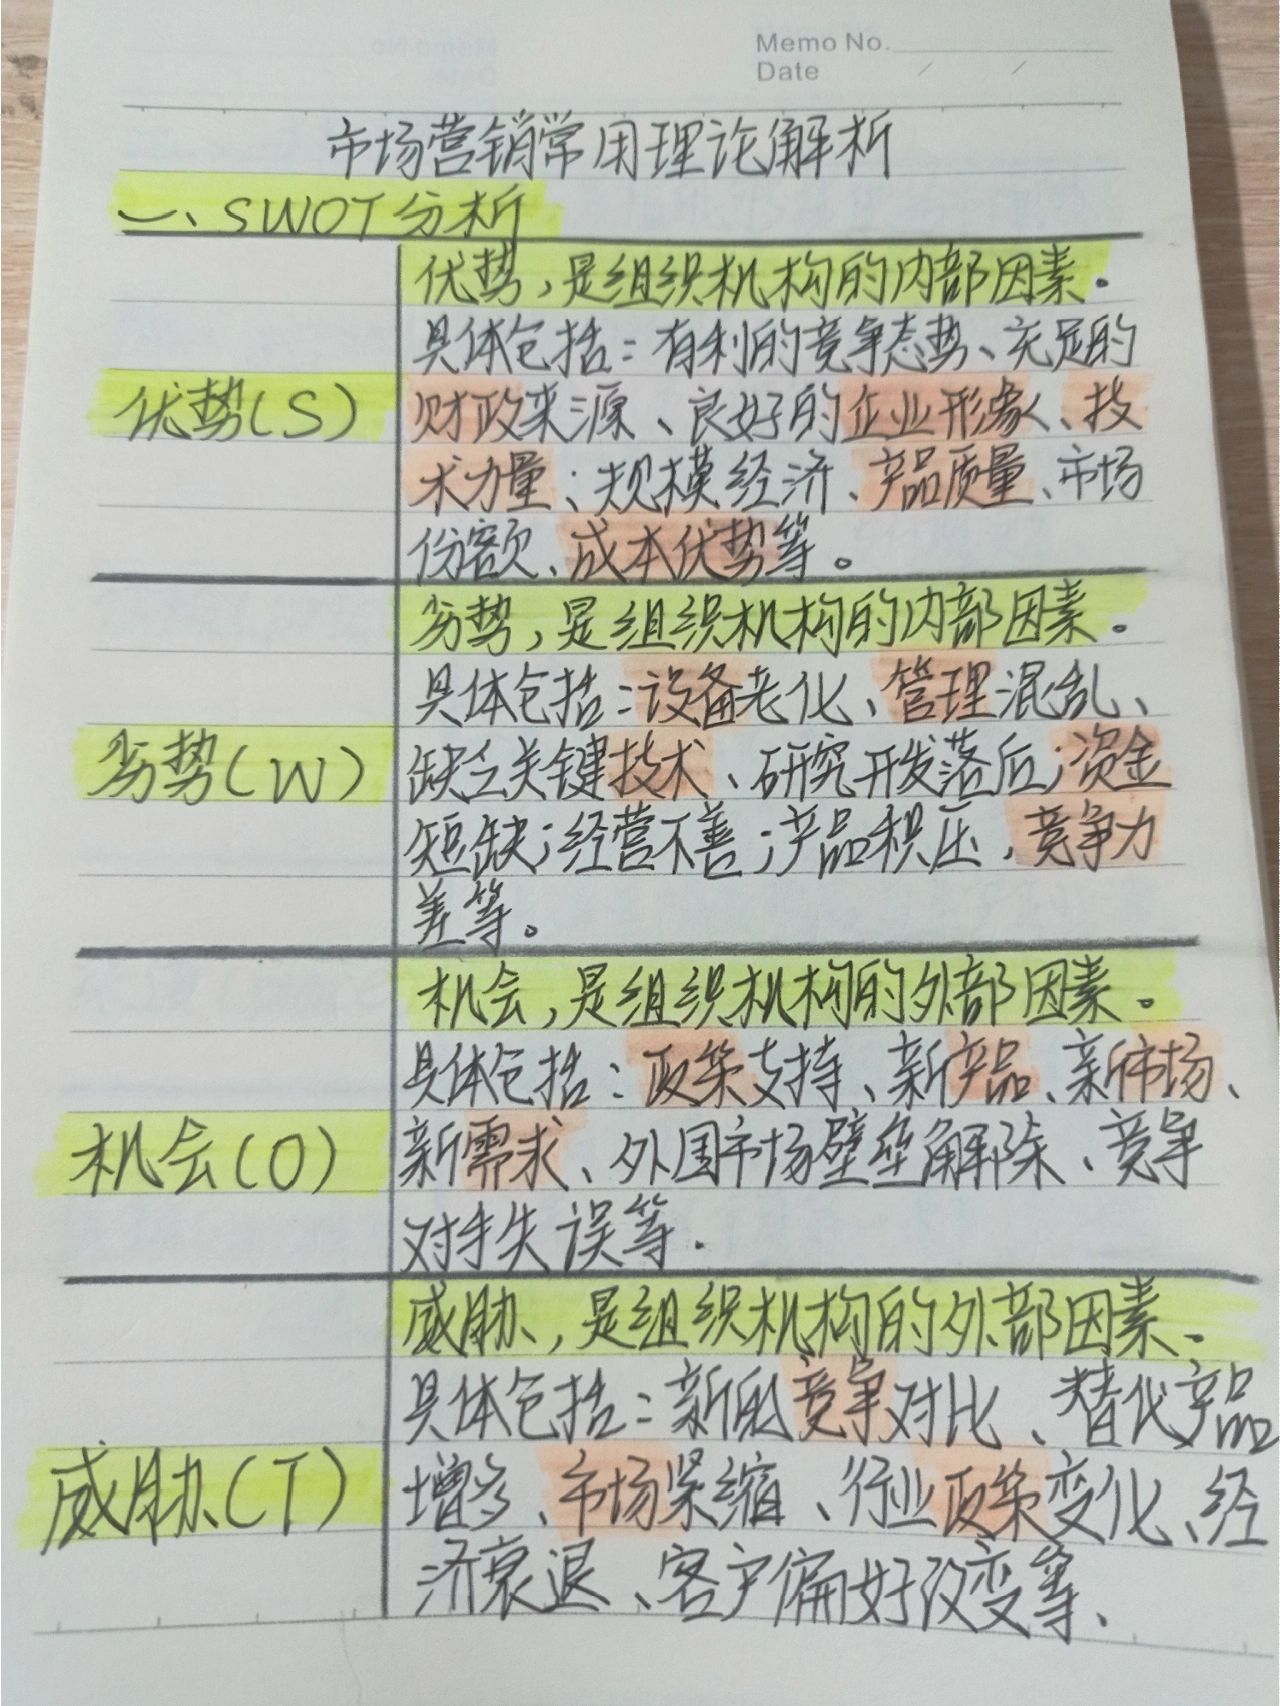 Memo No.
Date / /
市场营销常用理论解析
一、SWOT分析
优势,是组织机构的内部因素.
具体包括:有利的竞争态势、充足的
优势(S)
财政来源、良好的企业形象、技
术力量;规模经济、产品质量、市场
份额、成本优势等。
劣势,是组织机构的内部因素.
具体包括:设备老化、管理混乱、
劣势(W)
缺乏关键技术、研究开发落后;资金
短缺;经营不善;产品积压,竞争力
差等。
机会,是组织机构的外部因素。
具体包括:政策支持、新产品、新市场、
机会(O)
新需求、外国市场壁垒解除、竞争
对手失误等.
威胁,是组织机构的外部因素、
具体包括:新的竞争对比、替代产品
威胁(T)
增多、市场紧缩、行业政策变化、经
济衰退、客户偏好改变等、